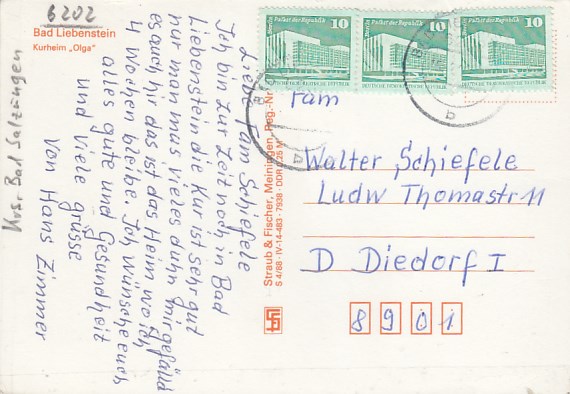 6202
Bad Liebenstein
Kurheim „Olga"
Kreis Bad Salzungen
Liebe Fam Schiefele
Ich bin zur Zeit noch in Bad
Liebenstein die Kur ist sehr gut
nur man mus vieles duhn mirgefäld
es auch hir das ist das Heim wo ich
4 Wochen bleibe. Ich wünsche euch
alles gute und Gesundheit
und viele grüsse
von Hans Zimmer
Straub & Fischer, Meiningen Reg.-Nr.
S 4/88 · IV-14-483 · 7938 · DDR 0,25 M
Berlin Palast der Republik 10
DEUTSCHE DEMOKRATISCHE REPUBLIK
Berlin Palast der Republik 10
DEUTSCHE DEMOKRATISCHE REPUBLIK
Berlin Palast der Republik 10
DEUTSCHE DEMOKRATISCHE REPUBLIK
a
Fam
Walter Schiefele
Ludw Thomastr 11
D Diedorf I
8901